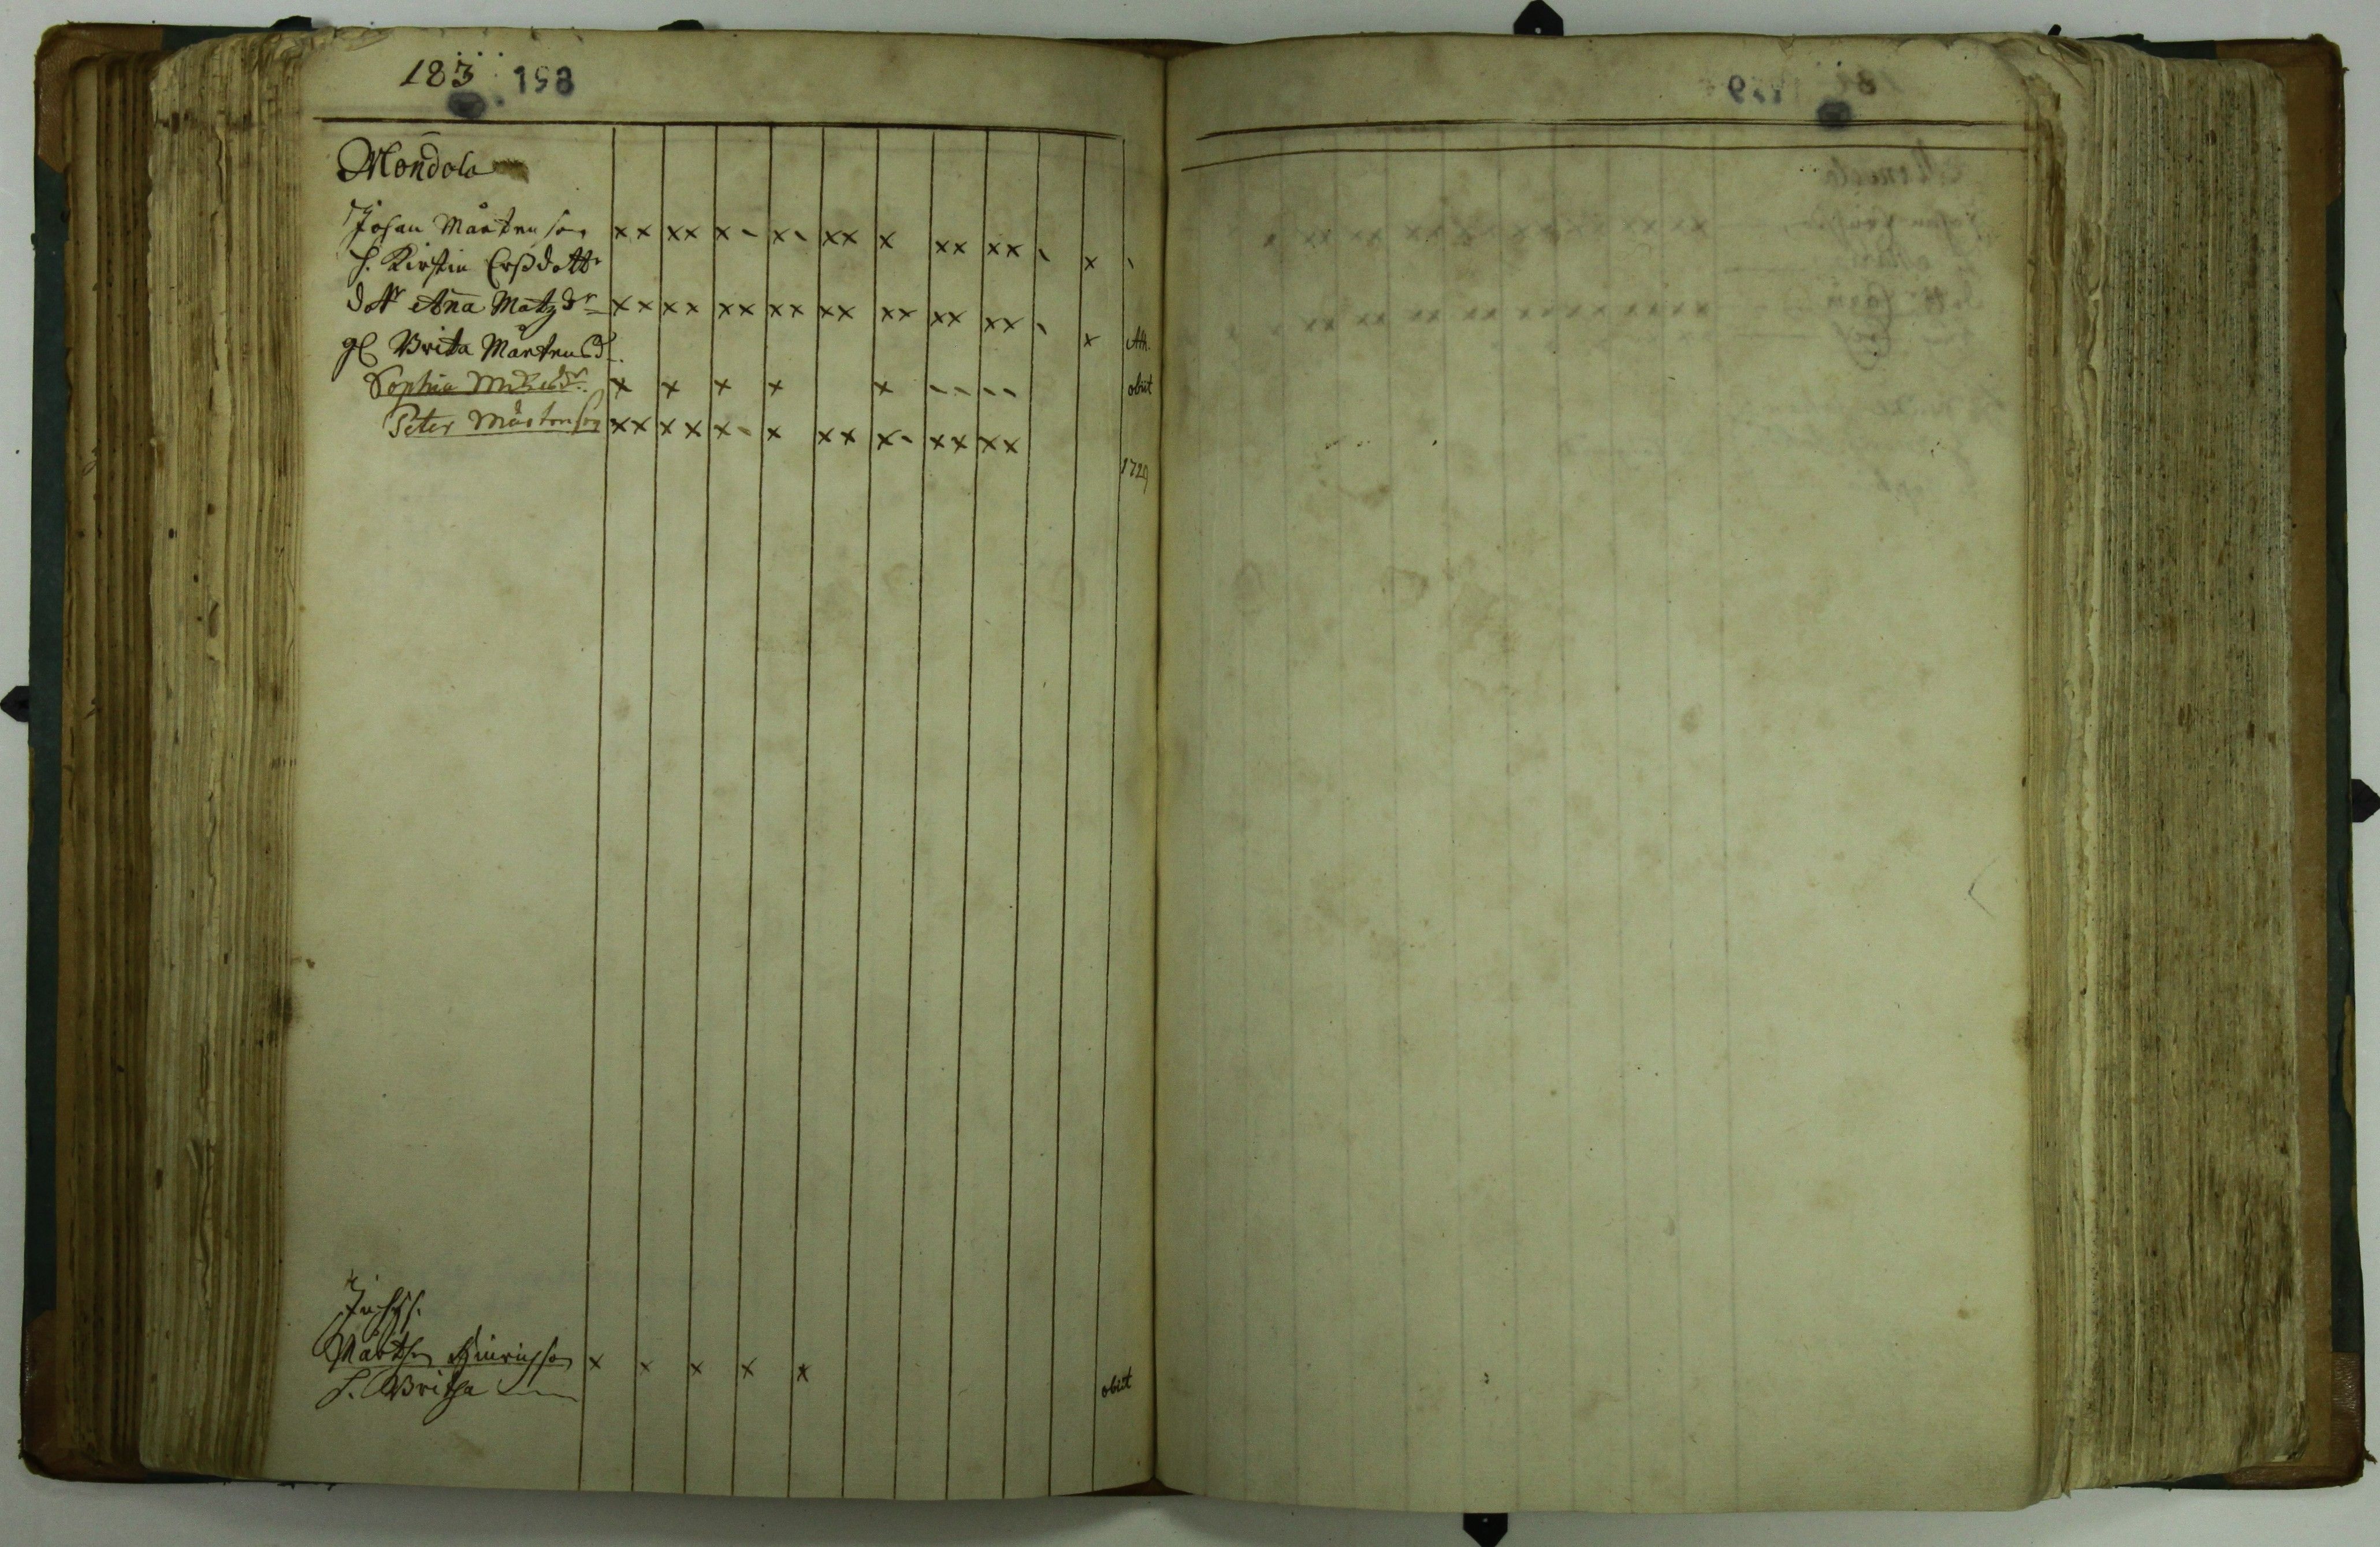 183 198
Mondola
Johan Mårtensson xx xx x- x- xx x xx xx - x -
h. Kirstin Ersdottr
dottr Anna Matzdr xx xx xx xx xx xx xx xx - x Ath.
gl Brita Mårtensd
Sophia x x x x x -- -- obiit
Peter Mårtonson xx xx x- x xx x- xx xx 1729
Inhys.
Mårthen Hinrichson x x x x x
h. Britha obiit